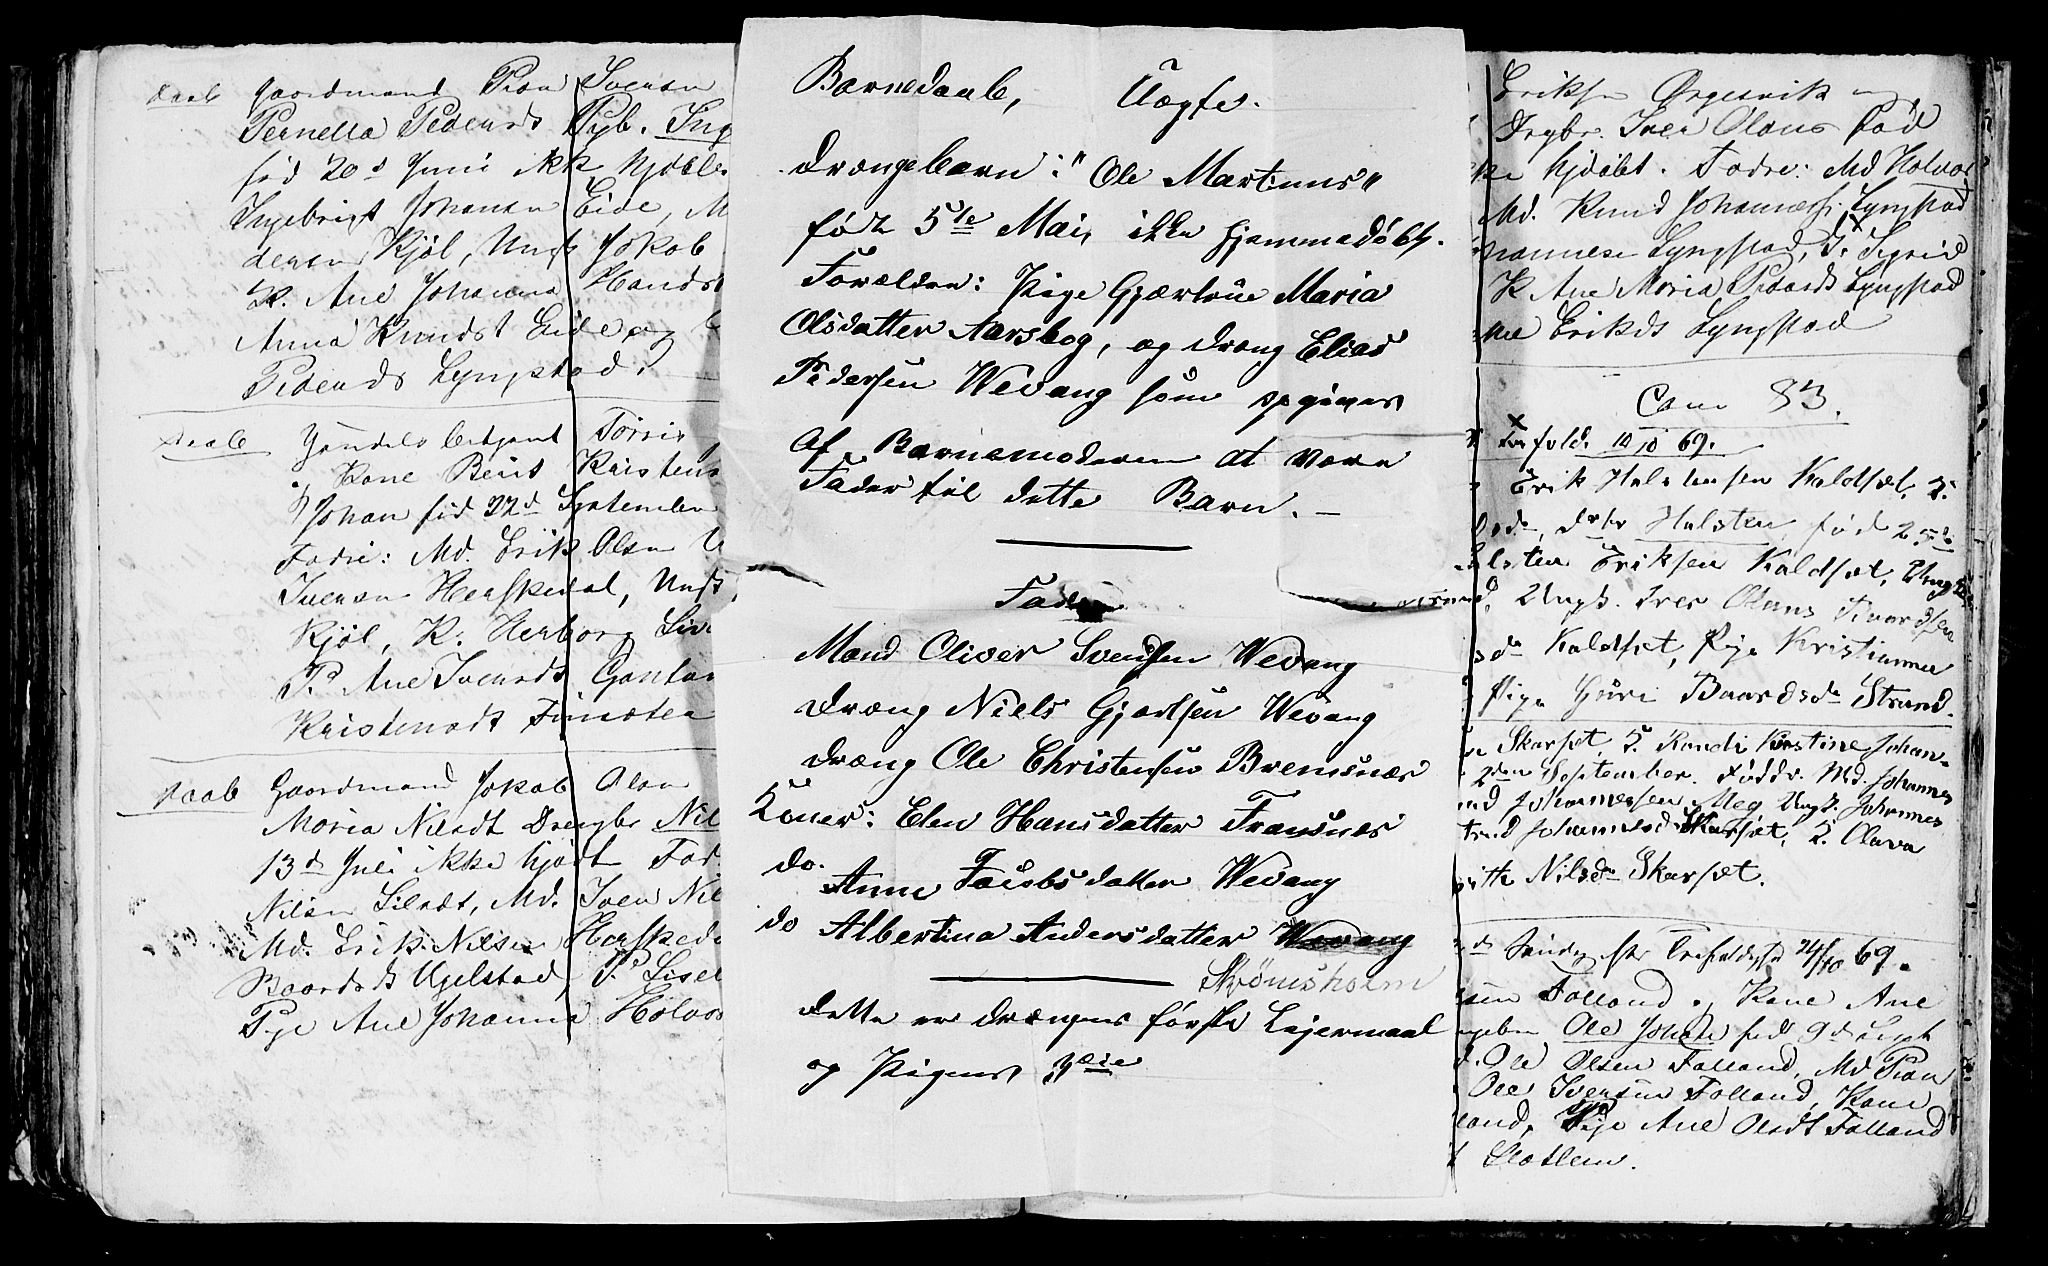 Daab Gaardmand Peder Iversen
Pernella Pedersdt Pyb. Ing
fød 20d Juni ikk hjdøbt
Ingebrigt Johansen Eide, M
dersen Kjöl, Ungk Jakob
K. Ane Johanna Handst
Anna Knudst Eide, og
Pedersdt Lyngstad.
Daab
Kone Berit Kristens
Johan fød 22d September
Fadre: Md. Erik Olsen
Iversen Herskedal, Ungk.
Kjöl, K. Herborg Siv
P. Ane Iversdt
Kristensdt
Daab Gaardmand Jakob Olsen
Maria Nilsdt Drengbr Nil
13d Juli ikke hjdøbt Fad
Nilsen Silsdt, Md. Iver Nil
Md. Erik Nilsen Herskeda
Baardsdt Ugelstad, P. Lisel
Pige Ane Johanna Holvor
Barnedaab, Uægte.
Drængebarn: "Ole Martinus"
født 5te Mai, ikke hjemmedøbt.
Forældre: Pige Gjærtrue Maria
Olsdatter Aarsbog, og dræng Elias
Pedersen Wevang som opgives
Af Barnemoderen at være
Fader til dette Barn. –
Faddere
Mand Oliver Svendsen Wevang
dræng Niels Gjertsen Wevang
dræng Ole Christensen Bremsnæs
Koner: Elen Hansdatter Frausnæs
do. Anne Jacobsdatter Wevang
do Albertina Andersdatter Wevang
Strømsholm
dette er drængens første Leiermaal
og Pigens 3die
Eriksen Ørgesvik og
Drgbr. Iver Olaus fød
ke hjdøbt. Fadre: Md Halvor
Md. Knud Johanness. Lyngstad
hannese Lyngstad, P. Sigrid
K Ane Maria Pedersdt Lyngstad
ne Eriksdt Lyngstad
Cane 83.
Trefold. 10/10 69.
Erik Halstensen Kaldset, 2.
drbr Halsten, fød 25de
alsten Eriksen Kaldset, Ungk
Ungk. Iver Olaus Baardsen
sdr Kaldset, Pige Kristianna
Pige Guri Baardsdr Strand.
Skarset, 5. Randi Kirstine Johan-
2den September. Faddr. Md. Johannes
nd Johannessen Meg Ungk. Johannes
trud Johannesd Skarset, 2. Olava
gitte Nilsdr Skarset.
ds Søndag efter Trefoldighed 24/10 69.
sen Folland og Kone Ane
ngebn Ole Johan fød 9d Sept
d. Ole Olsen Folland, Md Peder
Ole Iversen Folland, Kone
land, Pige Ane Olsdt Folland
Slatlem.